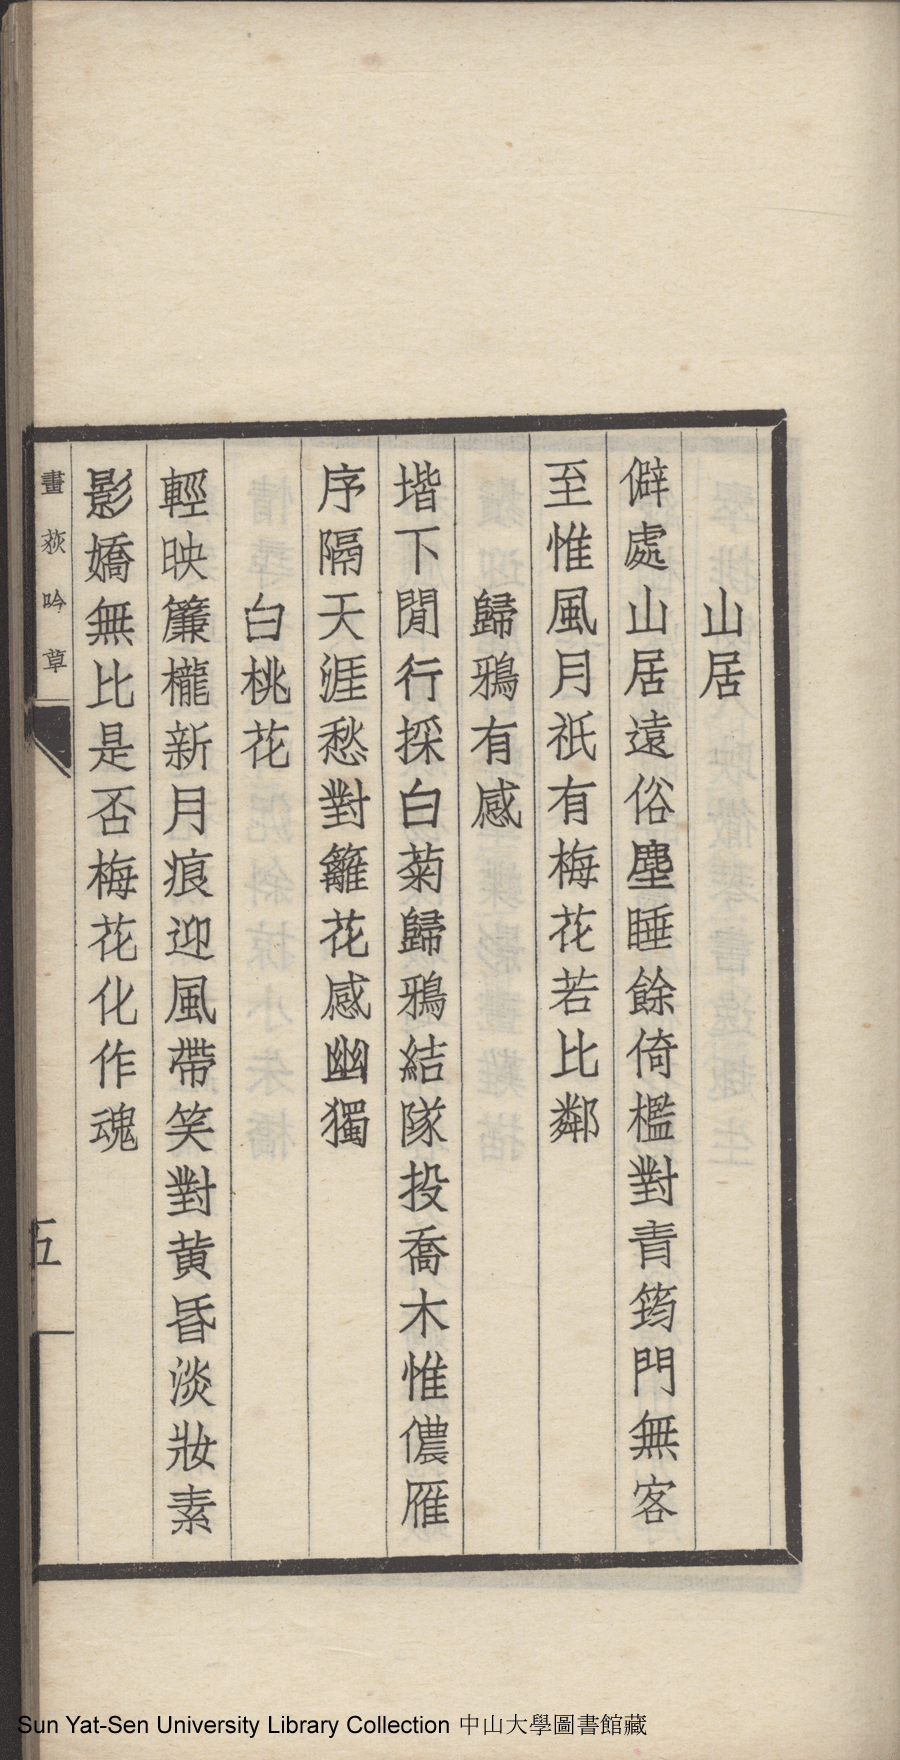 山居
僻處山居遠俗塵睡餘倚檻對青筠門無客
至惟風月祇有梅花若比鄰
歸鴉有感
堦下閒行採白菊歸鴉結隊投喬木惟儂雁
序隔天涯愁對籬花感幽獨
白桃花
輕映簾櫳新月痕迎風帶笑對黃昏淡妝素
影嬌無比是否梅花化作魂
畫荻吟草
五
Sun Yat-Sen University Library Collection 中山大學圖書館藏